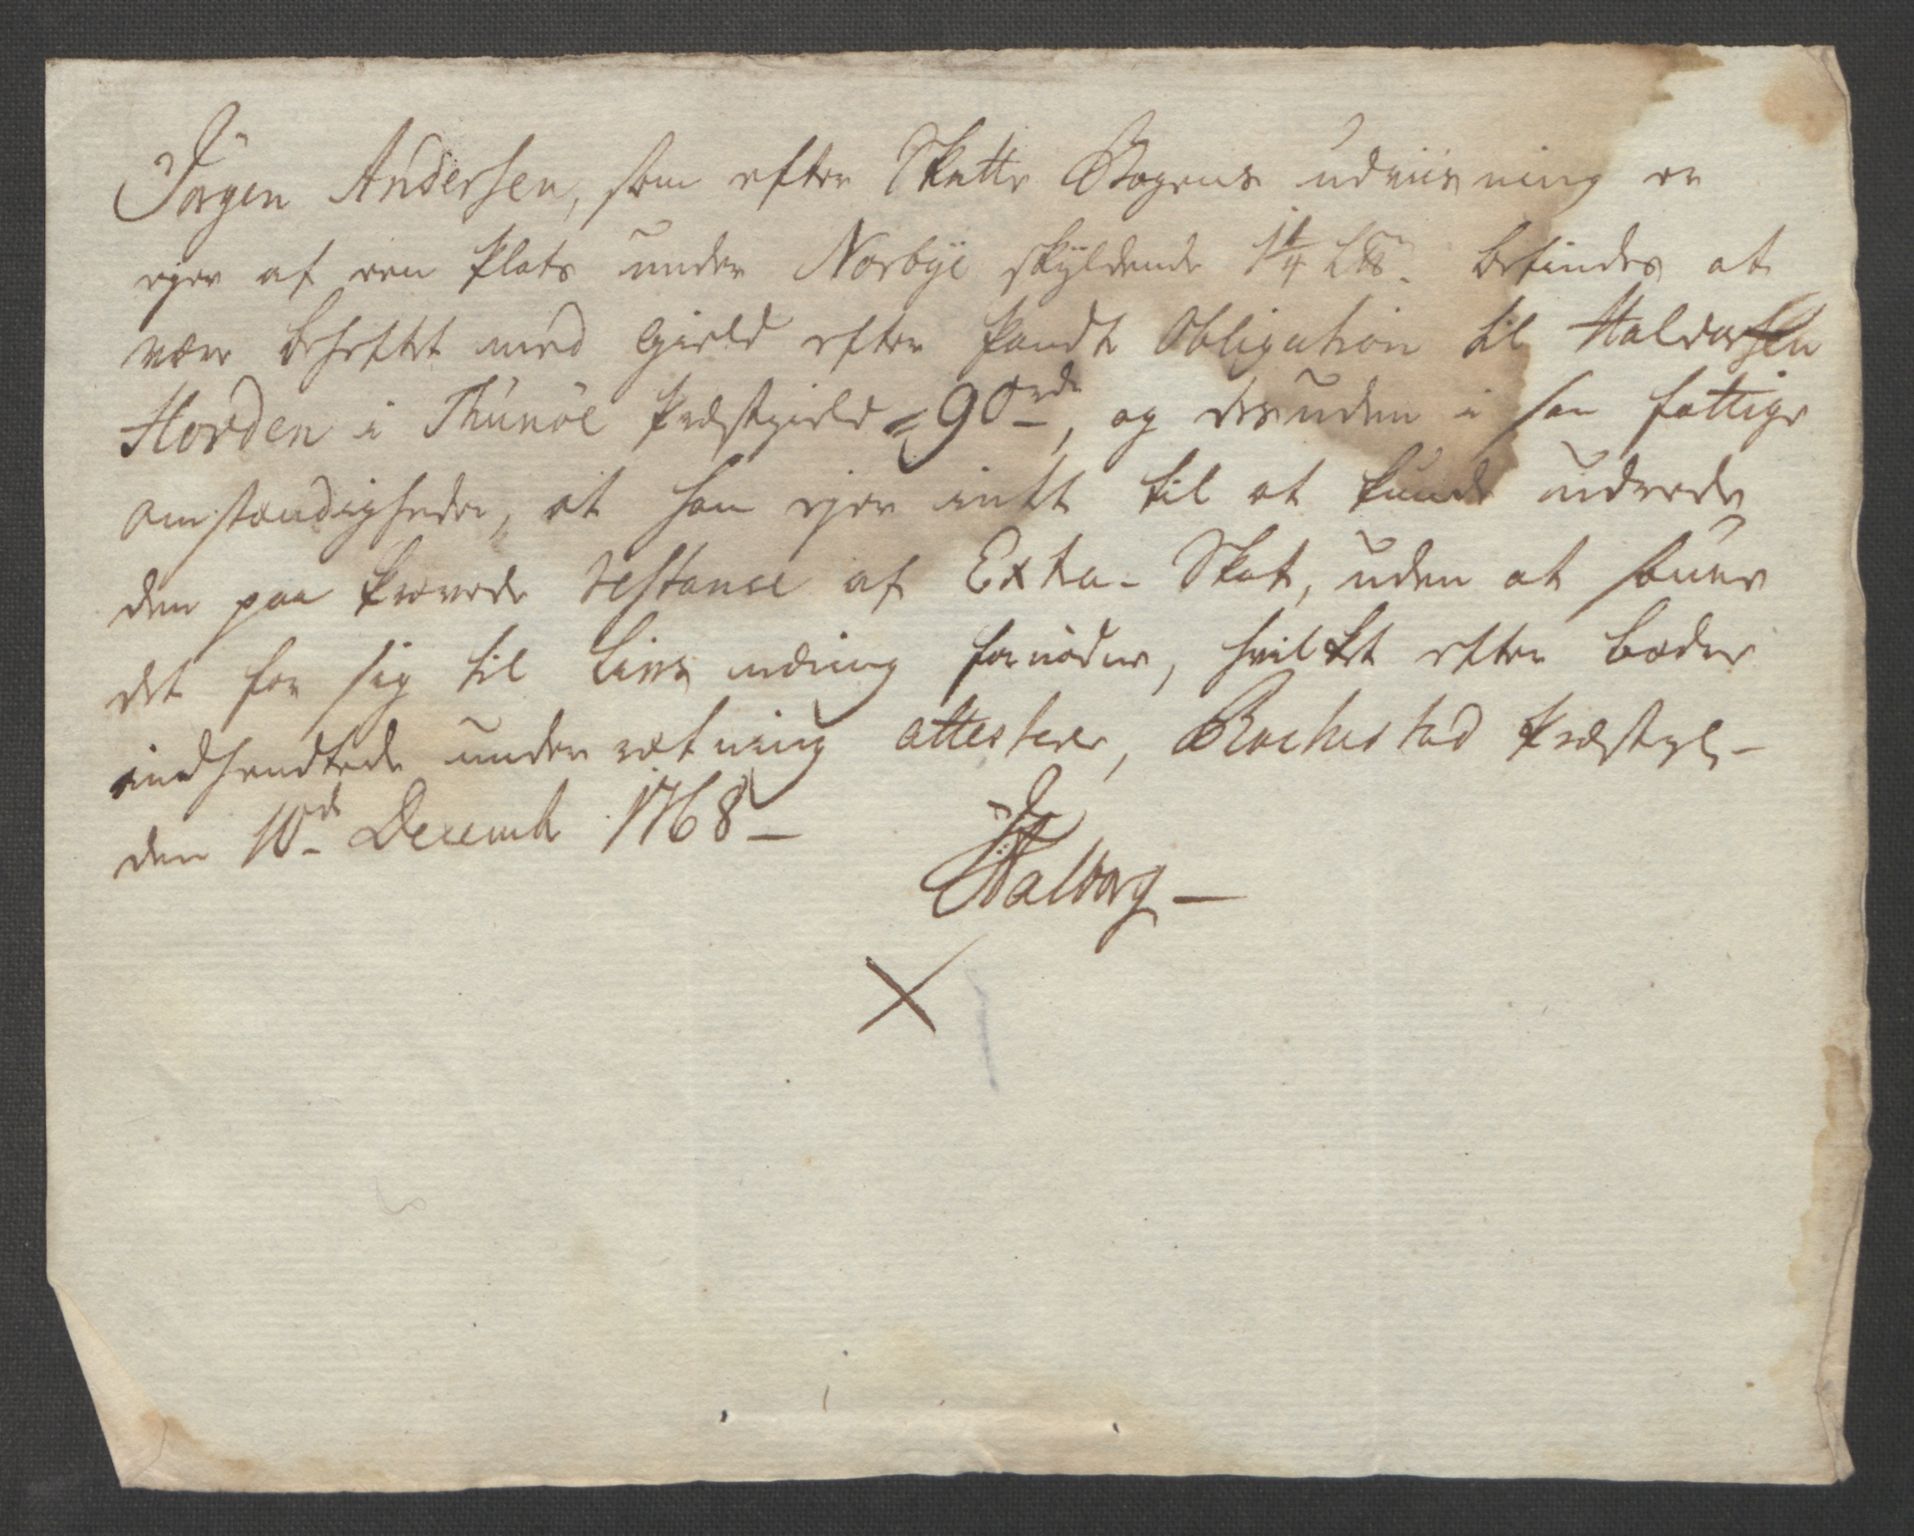 Jørgen Andersen, som efter Skatte Bogens udviisning er
ejer af een Plats under Norbÿe skÿldende 1 1/4 L℔. befindes at
være beheftet med Gield efter Pandte Obligation til Haldorsen
Horden i Thúnöe Præstgield = 90 rdr, og desuden i saa fattige
omstændigheder, at han ejer intet til at kunde udrede
den paa krævede restance af Extra-Skat, uden at
det for sig til Livs næring fornöden, hvilket efter
indhendtede underretning attesterer, Rachestad Præstgl-
den 10de Decemb 1768 -
Aalborg -